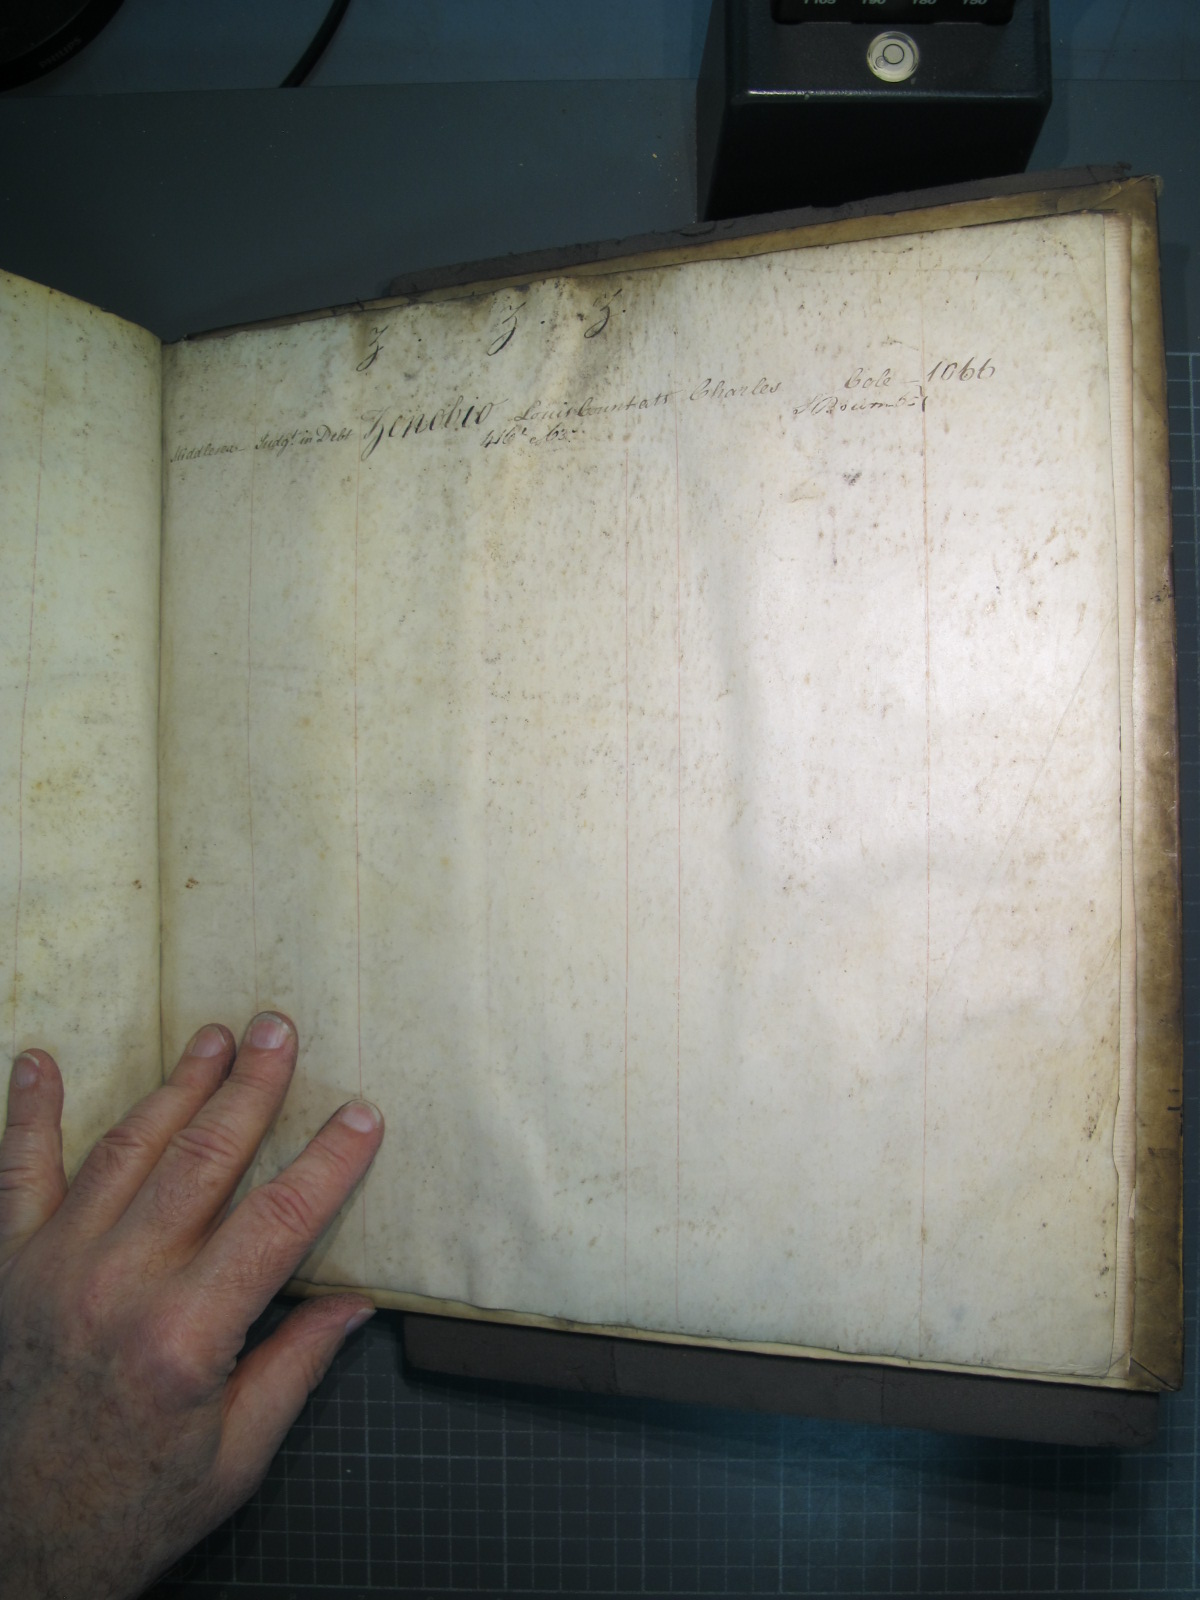 Z Z Z
Middlesex Judgt in Debt Zenobio Louis Count att Charles Cole 1066
416£ 63s
PHILIPS